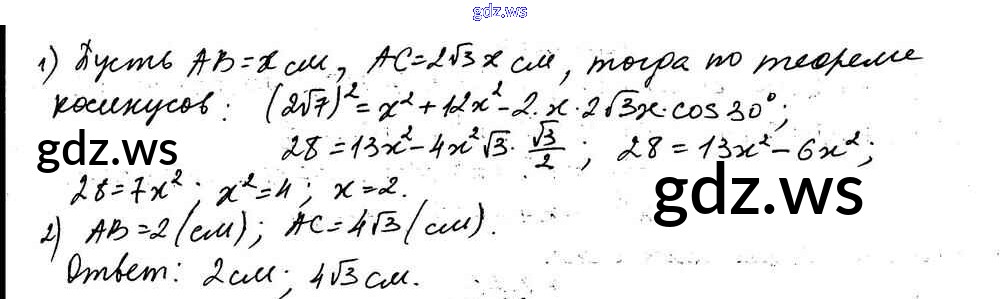 gdz.ws
1) Пусть AB=x см, AC=2√3x см, тогда по теореме
косинусов: (2√7)²=x²+12x²-2·x·2√3x·cos30°;
28=13x²-4x²√3·√3/2; 28=13x²-6x²;
gdz.ws
28=7x²; x²=4; x=2.
gdz.ws
2) AB=2(см); AC=4√3(см).
Ответ: 2см; 4√3см.